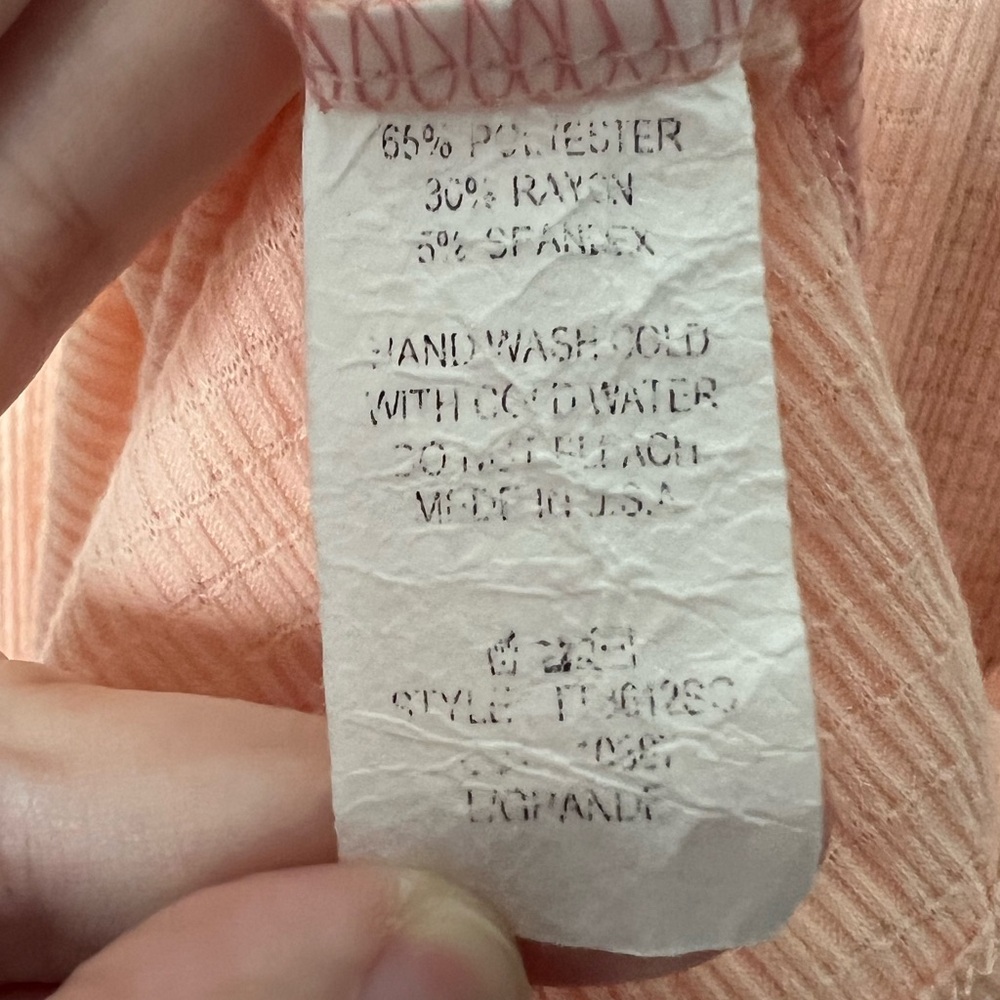 65% POLYESTER
30% RAYON
5% SPANDEX
HAND WASH COLD
WITH COLD WATER
DO NOT BLEACH
MADE IN U.S.A
STYLE
L/GRANDE